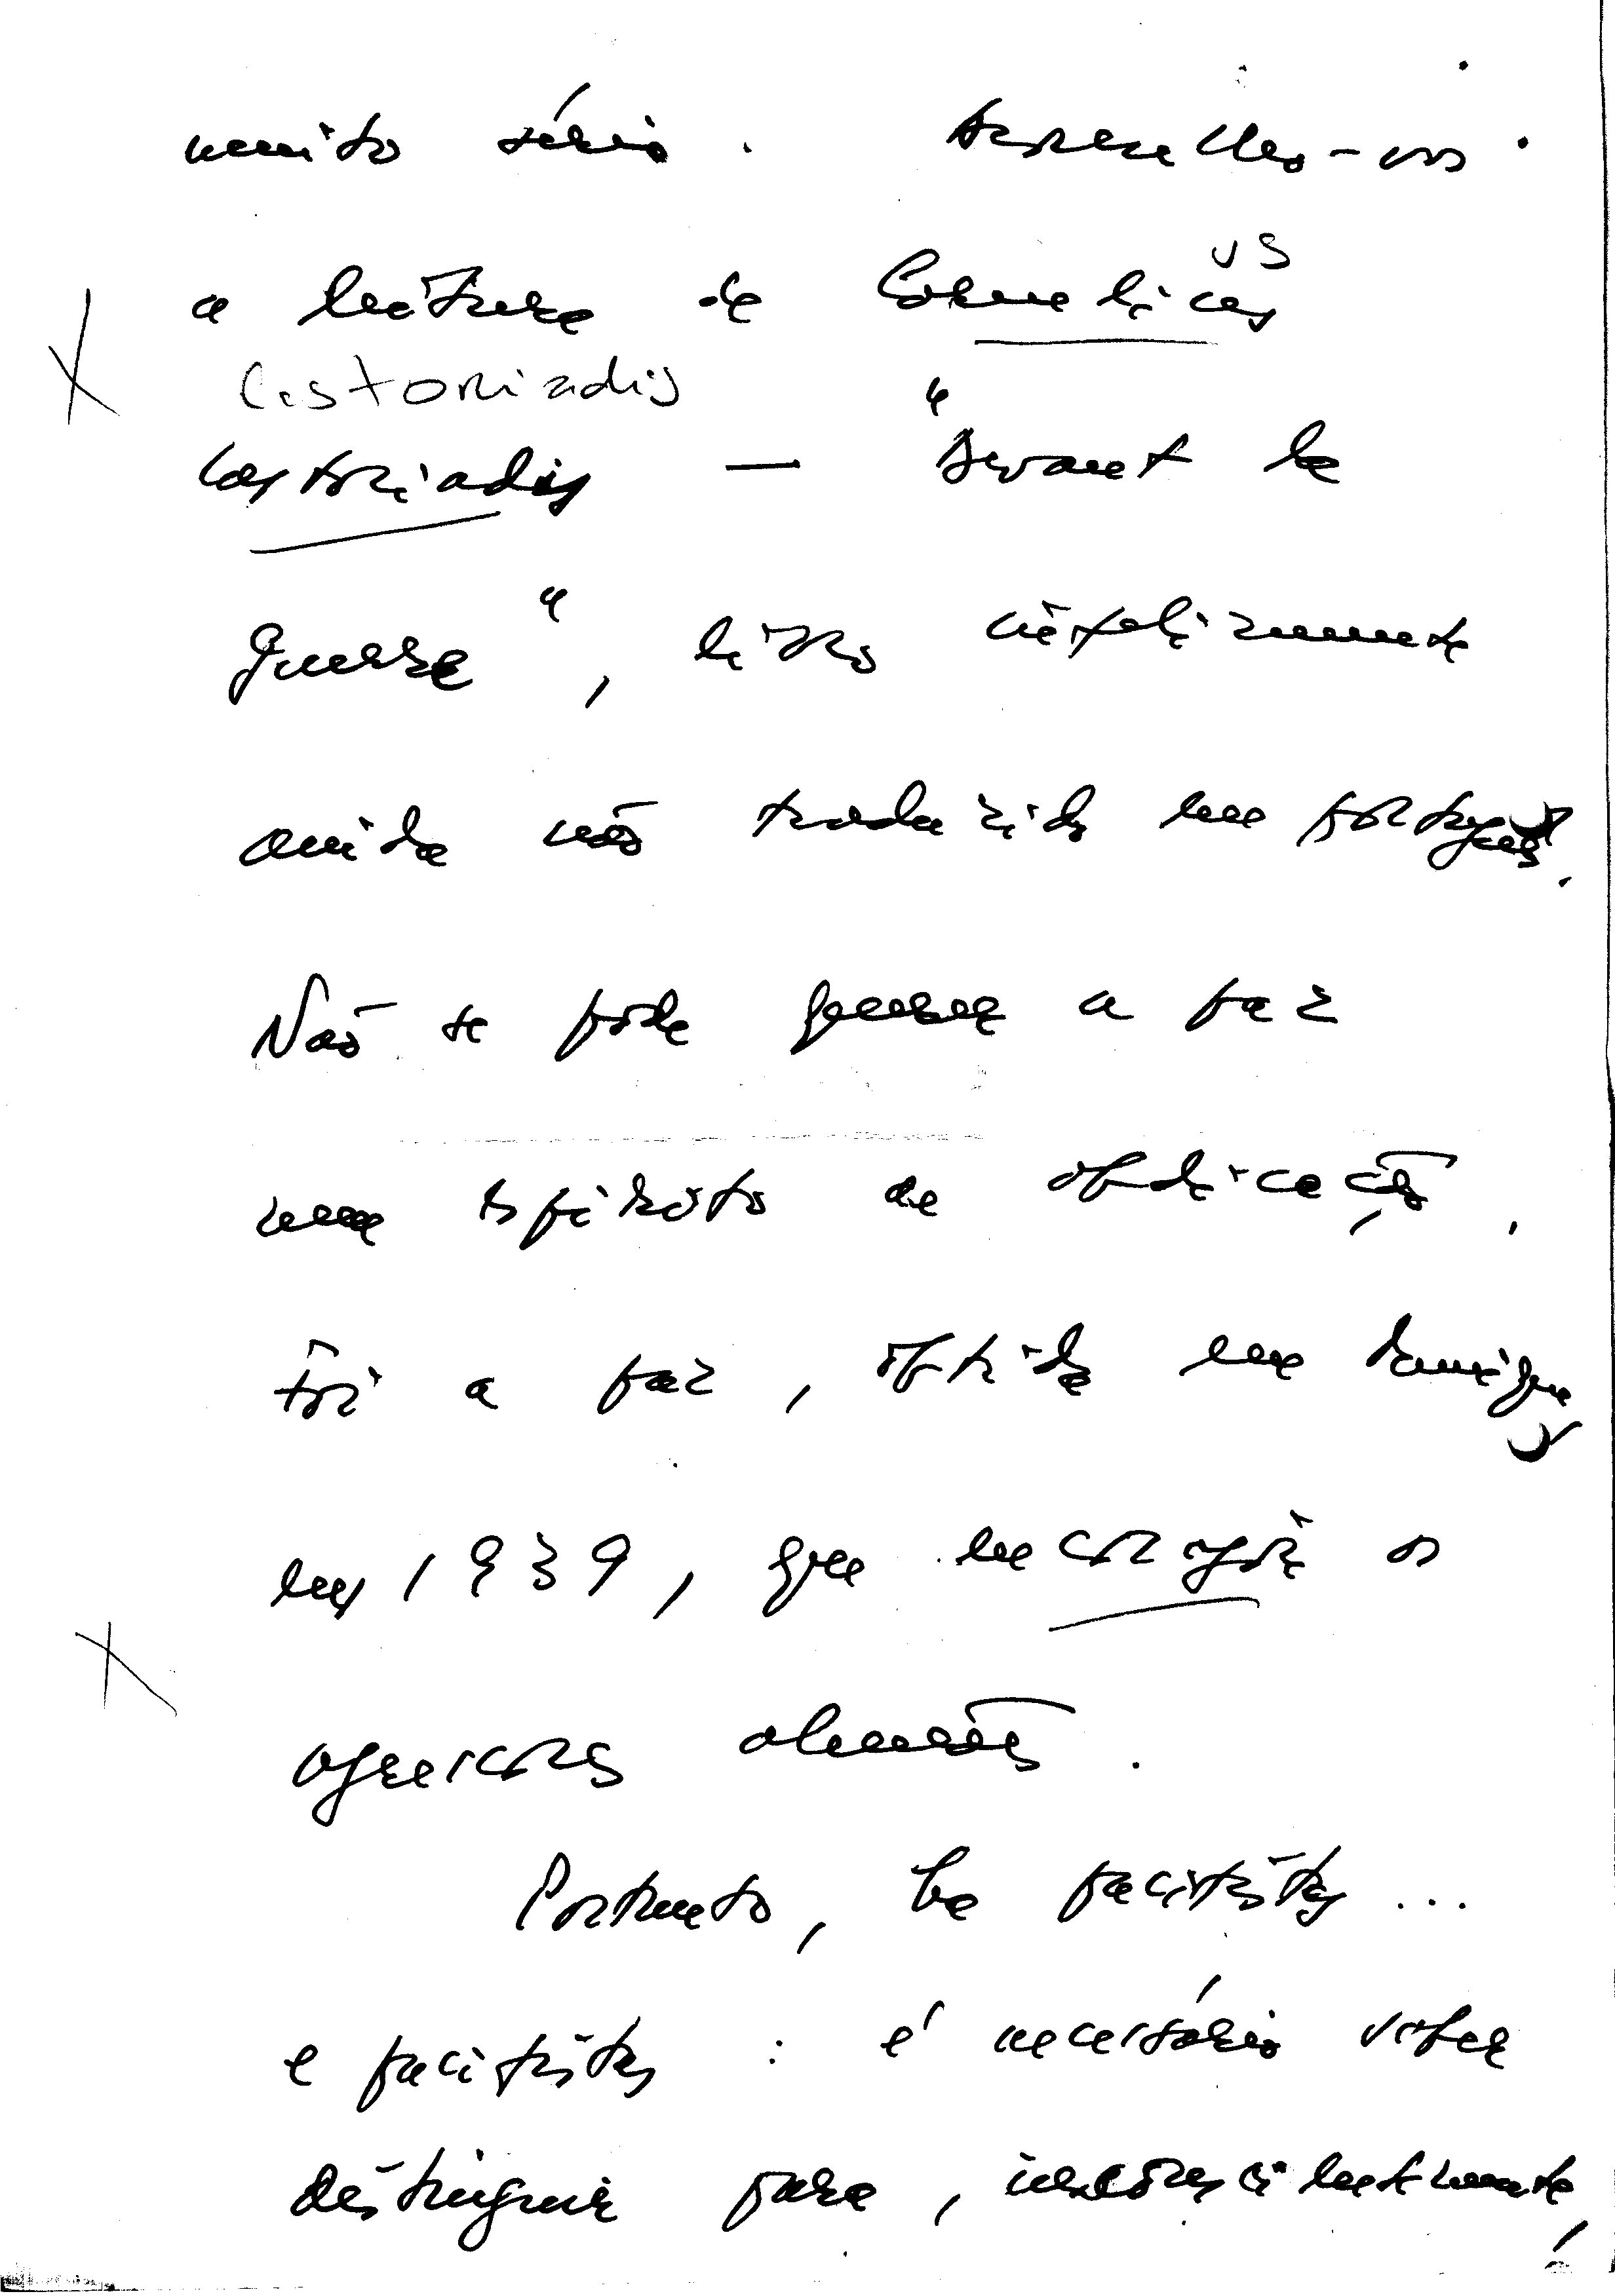 muito sério. Aconselho-vos
a leitura de Cornelius
us
Castoriadis
Castoriadis — "Devant la
guerre", livro infelizmente
ainda não traduzido em português.
Não se pode querer a paz
num espírito de abdicação.
Foi a paz, obtida em Munique
em 1939, que encorajou os
agressores alemães.
Portanto, há pacifistas...
e pacifistas: é necessário saber
distinguir para, inconscientemente,